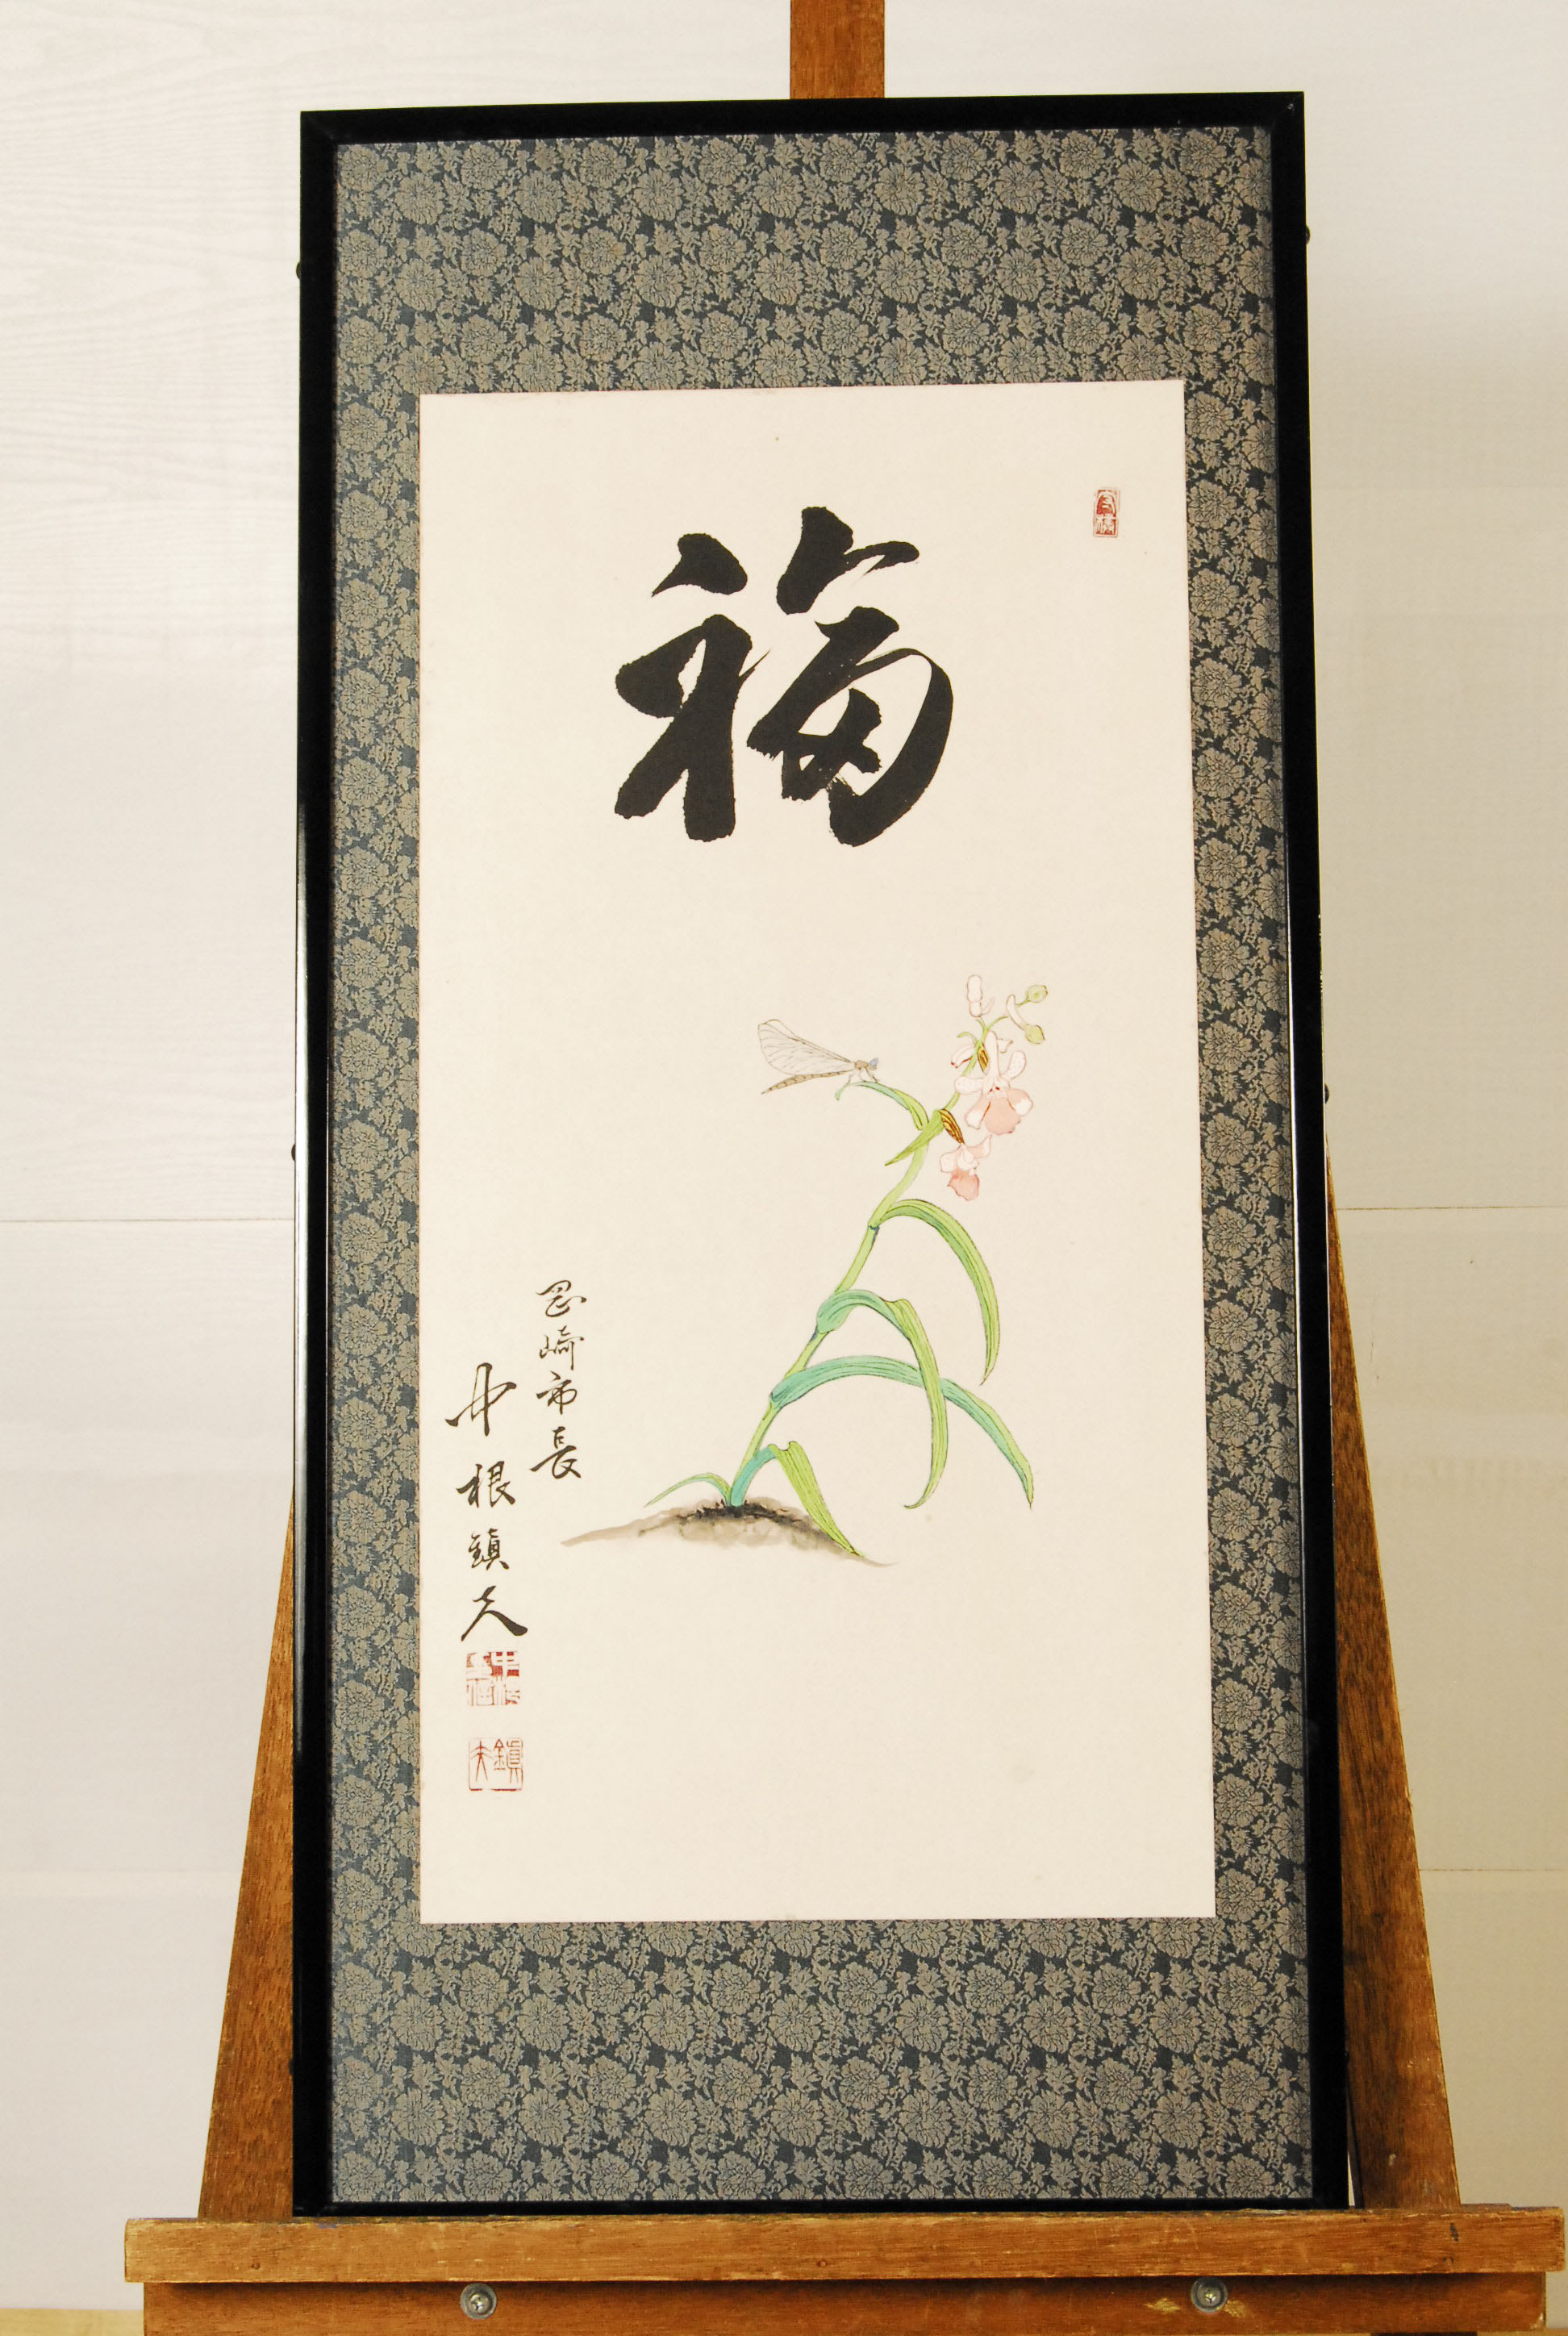 福
岡崎市長
中根鎮夫
鎮夫